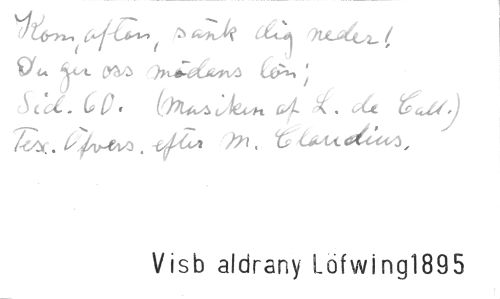 Kom, afton, sänk dig neder!
Du ger oss mödans lön;
Sid. 60. (Musiken af L. de Call.)
Tex. Öfvers. efter M. Claudius.
Visb aldrany Löfwing1895